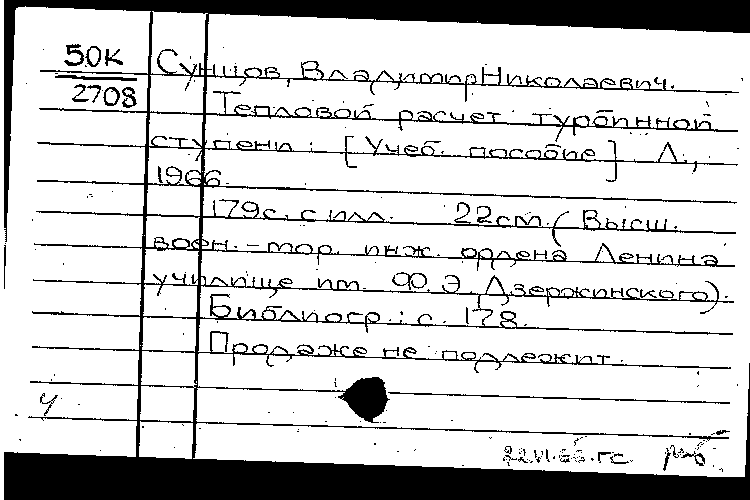 50К
2708
Сунцов, Владимир Николаевич.
Тепловой расчет турбинной
ступени: [Учеб. пособие] Л.,
1966.
179с. с илл. 22см. (Высш.
воен.-мор. инж. ордена Ленина
училище им. Ф.Э. Дзержинского).
Библиогр.: с. 178.
Продаже не подлежит.